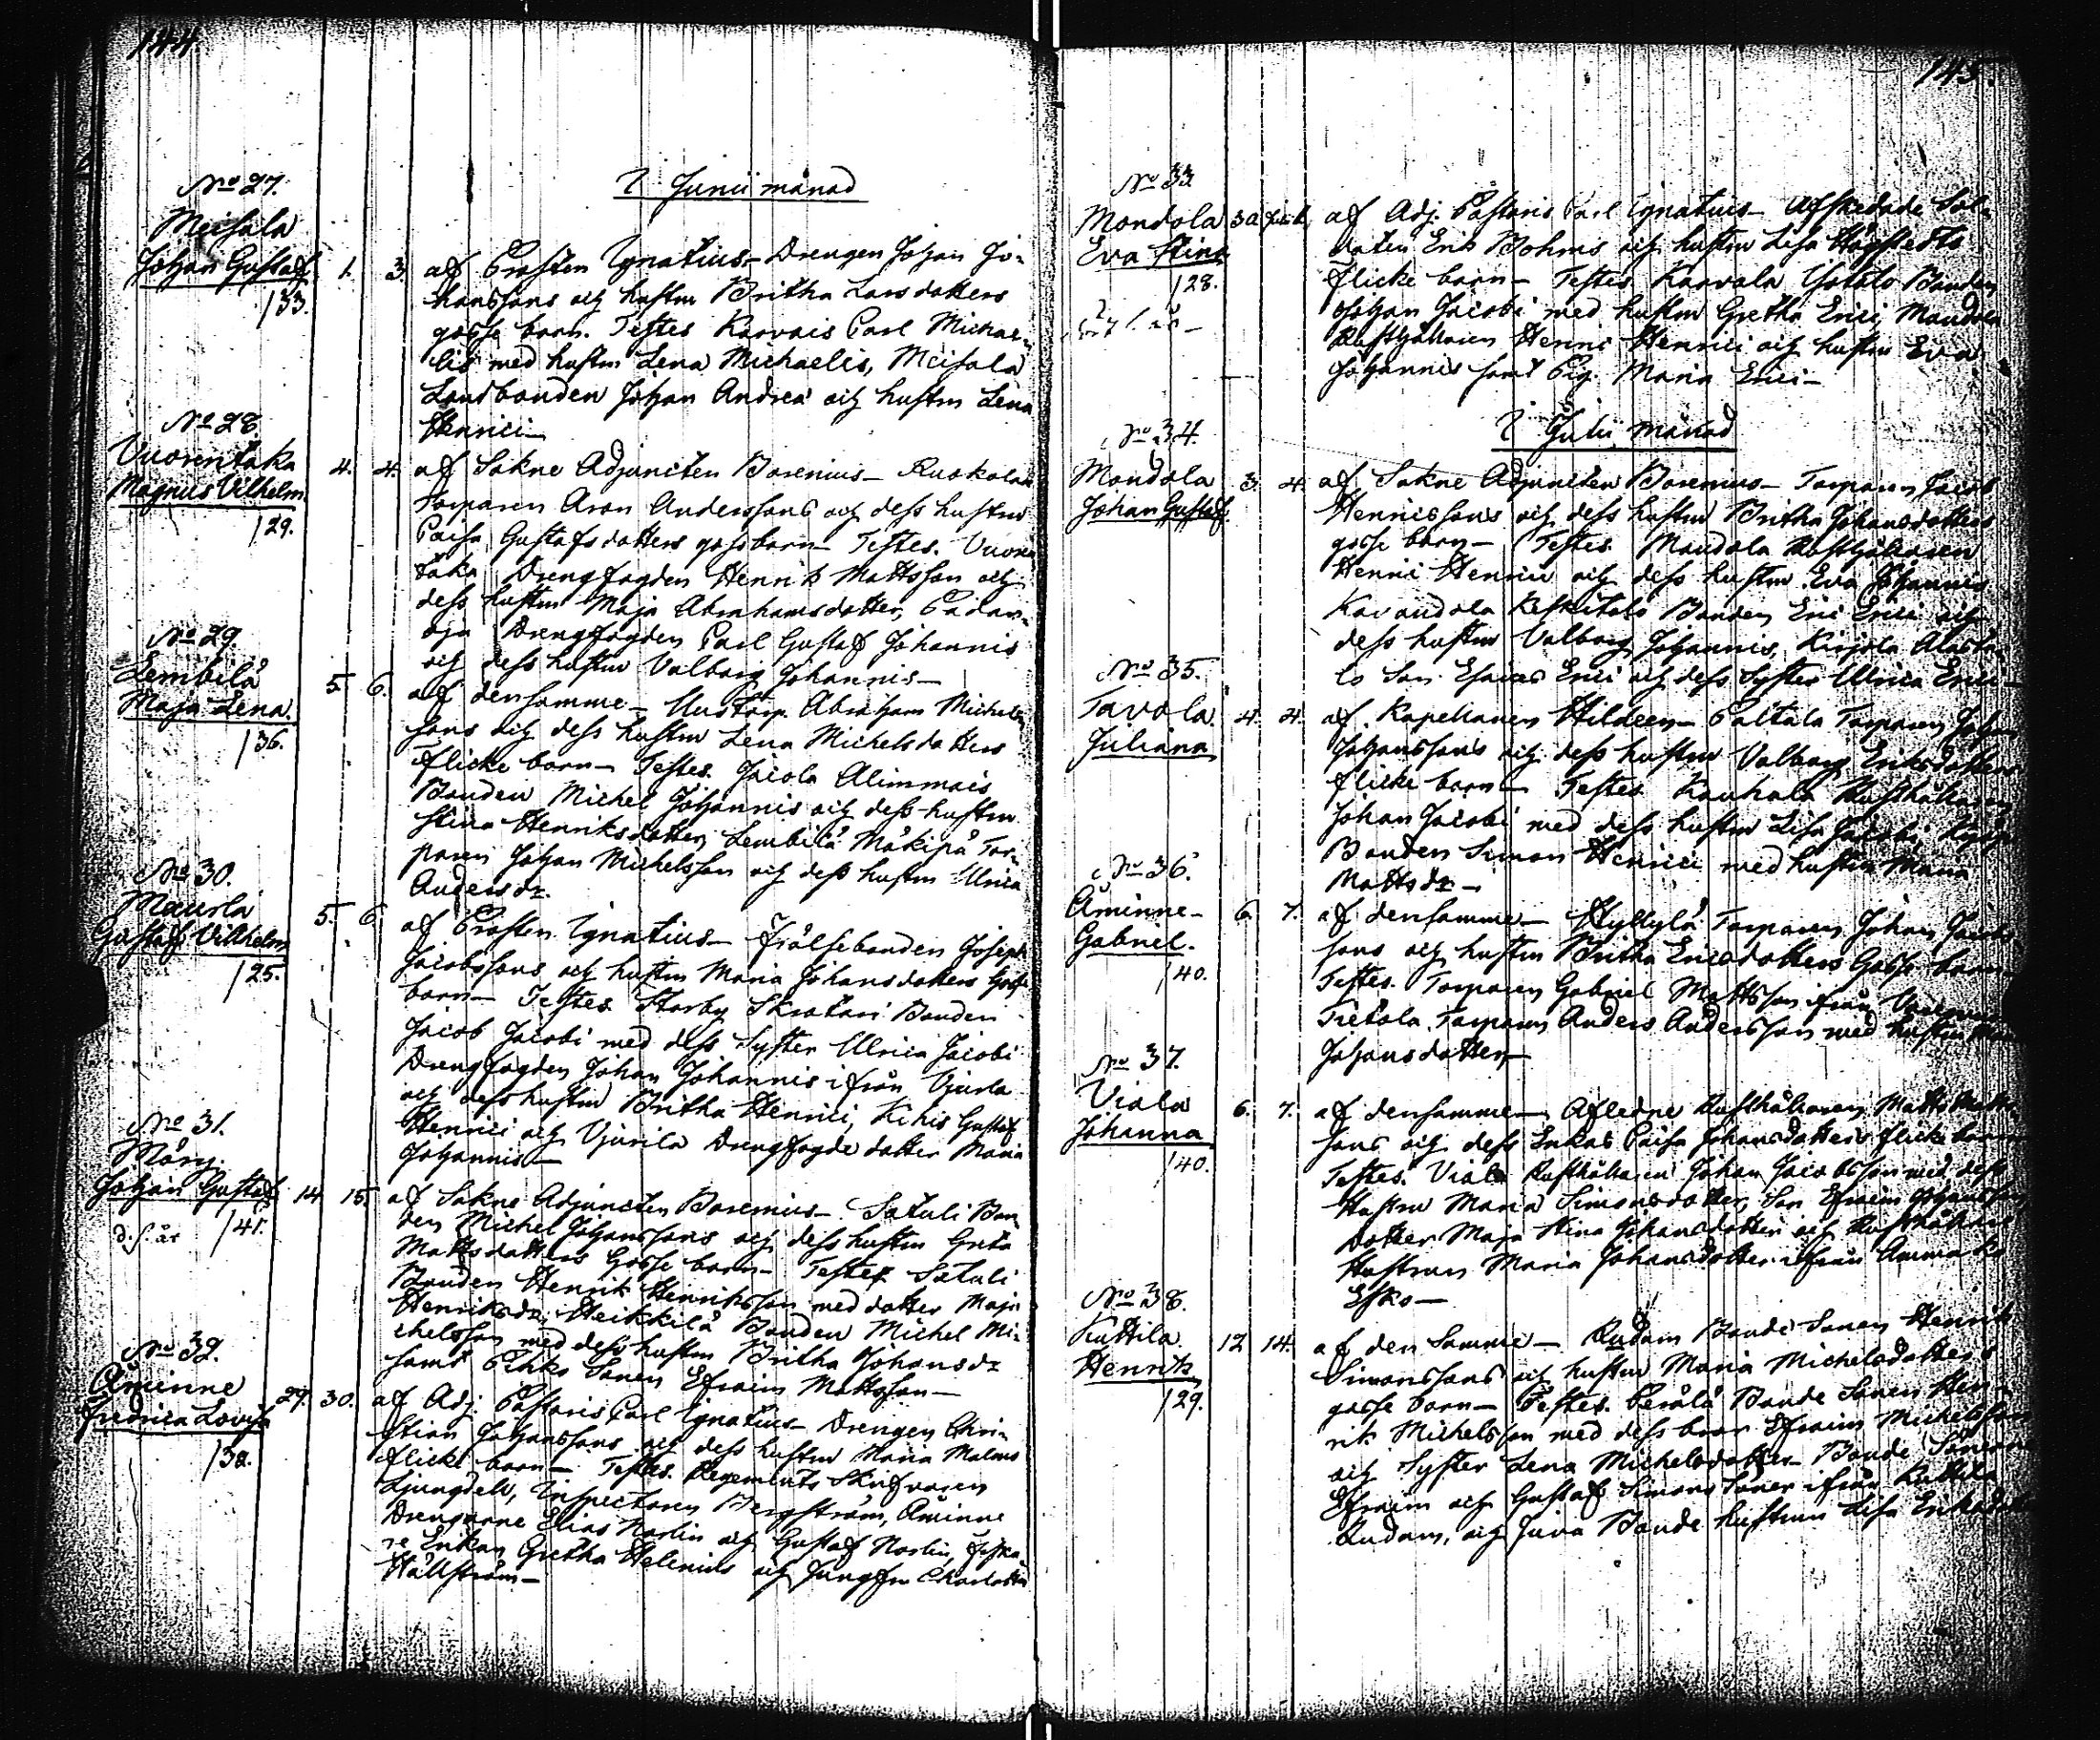 144.
I Junii månad
No 27.
Meisala
Johan Gustaf 1. 3.
133.
af Prosten Ignatius – Drengen Johan Jo-
hanssons och hustru Britha Larsdotters
gosse barn. Testes Karvais Carl Michae-
lis med hustru Lena Michaelis, Meisala
Landbonden Johan Andreæ och hustru Lena
Henrici –
No 28
Vuorentaka
Magnus Vilhelm 4. 4.
129.
af Sokne Adjuncten Borenius – Ruokolan
Torparen Aron Anderssons och dess hustru
Caisa Gustafsdotters gossbarn – Testes. Vuoren
taka Drengfogden Henrik Mattsson och
dess hustru Maja Abrahamsdotter, Padan-
oja Drengfogden Carl Gustaf Johannis
och dess hustru Valborg Johannis –
No 29.
Lembilä
Maja Lena. 5. 6.
136.
af densamme – Torp. Abraham Michels
sons och dess hustru Lena Michelsdotters
flicke barn – Testes. Jacola Alimmais
Bonden Michel Johannis och dess hustru
Stina Henriksdotter, Lembilä Mäkipä Tor-
paren Johan Michelsson och dess hustru Ulrica
Andersdr.
No 30.
Maurla
Gustaf Vilhelm 5. 6.
125.
af Prosten Ignatius – Frälsebonden Joseph
Jacobssons och hustru Maria Johansdotters Gosse
barn – Testes Storby Skratari Bonden
Jacob Jacobi med dess Syster Ulrica Jacobi
Drengfogden Johan Johannis ifrån Vjurla
och dess hustru Britha Henrici, Kihis Gustaf
Henrici och Vjurila Drengfogde dotter Maria
Johannis –
No 31.
Märy.
Johan Gustaf 14. 15.
d. s. år 141.
af Sokne Adjuncten Borenius – Satuli Bon-
den Michel Johanssons och dess hustru Greta
Mattsdotters Gosse barn – Testes Satuli
Bonden Henrik Henriksson med dotter Maja
Henriksdr. Heikkilä Bonden Michel Mi-
chelsson med dess hustru Britha Johansdr
samt Pihko Sonen Efraim Mattsson –
No 32.
Åminne
Fredrica Lovisa 29. 30.
130.
af Adj. Pastoris Carl Ignatius – Drengen Chri-
stian Johanssons och dess hustru Maria Malms
flicke barn – Testes. Regements Skrifvaren
Ljungdell, Inspectoren Bergström, Åminne
Drengarne Elias Norlin och Gustaf Norlin,
Enkan Gretha Helenius och Jungfru Charlotta
Hällström –
145.
No 33
Mondola 30
Eva Stina
128.
af Adj. Pastoris Carl Ignatius – Afskedade Sol-
daten Erik Bohms och hustru Lisa Högstedts
flicke barn – Testes Karvala Yotalo Bonden
Johan Jacobi med hustru Gretha Erici, Mondola
Rusthållaren Henric Henrici och hustru Eva
Johannis samt Pig. Maria Erici –
I Julii månad
No 34.
Mondola 3. 4.
Johan Gustaf.
af Sokne Adjuncten Borenius – Torparen Jacob
Henricssons och dess hustru Britha Johansdotters
gosse barn – Testes. Mondola Rusthållaren
Henric Henrici och dess hustru Eva Johannis
Kavandola Keskitalo Bonden Eric Erici och
dess hustru Valborg Johannis, Kirjola Alasta-
lo Son Esaias Erici och dess Syster Ulrica Erici –
No 35.
Tavola 4. 4.
Juliana
af Kapellanen Hildeen – Paltala Torparen Johan
Johanssons och dess hustru Valborg Eriksdotters
flicke barn – Testes Kauhala Rusthållaren
Johan Jacobi med dess hustru Lisa Jacobi,
Bonden Simon Henrici med hustru Maria
Mattsdr –
No 36.
Åminne – 6. 7.
Gabriel.
140.
af densamme – Hyllylä Torparen Johan Jacobs
sons och hustru Britha Ericsdotters Gosse barn –
Testes. Torparen Gabriel Mattsson ifrån
Tietola Torparen Anders Andersson med hustru
Johansdotter –
No 37.
Viala 6. 7.
Johanna
140.
af densamme – Afledne Rusthållaren Matts Matts
sons och dess Enkas Caisa Johansdotters flicke barn
Testes. Viala Rusthållaren Johan Jacobsson med dess
Hustru Maria Simonsdotter, Son Efraim Johansson
Dotter Maja Stina Johansdotter och Rusthållare
Hustrun Maria Johansdotter ifrån Ammako
Esko –
No 38.
Kuttila 12 14.
Henrik
129.
af den Samme – Rudam Bonde Sonen Henrik
Simonssons och hustru Maria Michelsdotters
gosse barn – Testes. Perälä Bonde Sonen Hen-
rik Michelsson med dess bror Efraim Michelsson
och Syster Lena Michelsdotter. Bonde Sönerne
Efraim och Gustaf Simons Söner ifrån Kuttila
Rudam, och Juva Bonde hustrun Lisa Eriksdotter